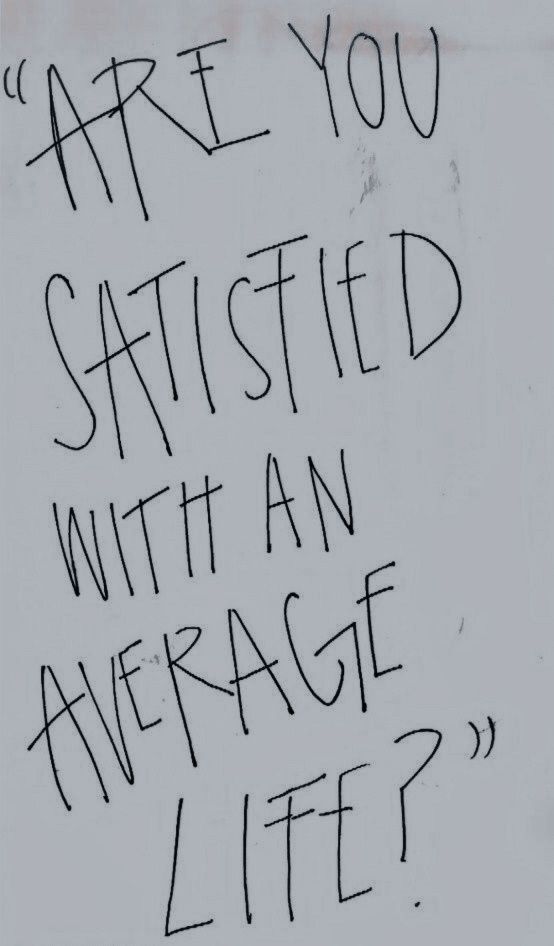 "ARE YOU
SATISFIED
WITH AN
AVERAGE
LIFE?"